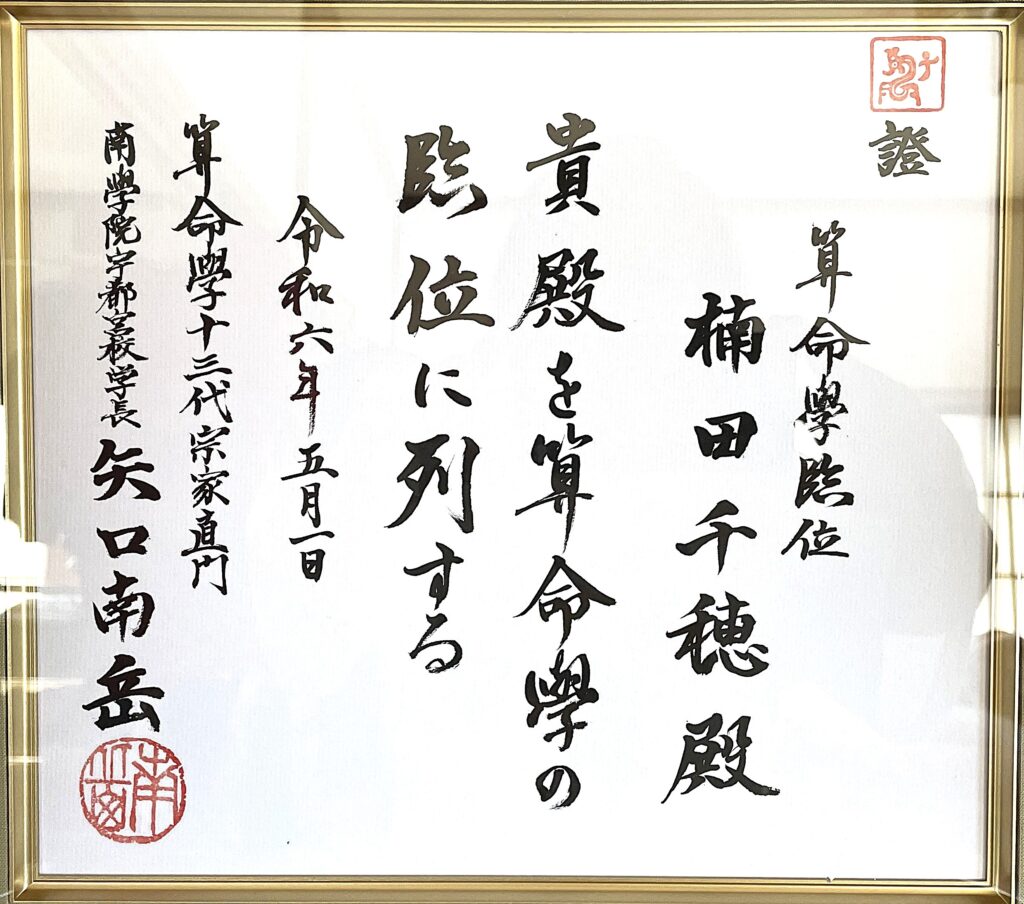 證
算命學臨位
楠田千穂殿
貴殿を算命學の
臨位に列する
令和六年五月一日
算命學十三代宗家直門
南學院宇都宮校学長 矢口南岳